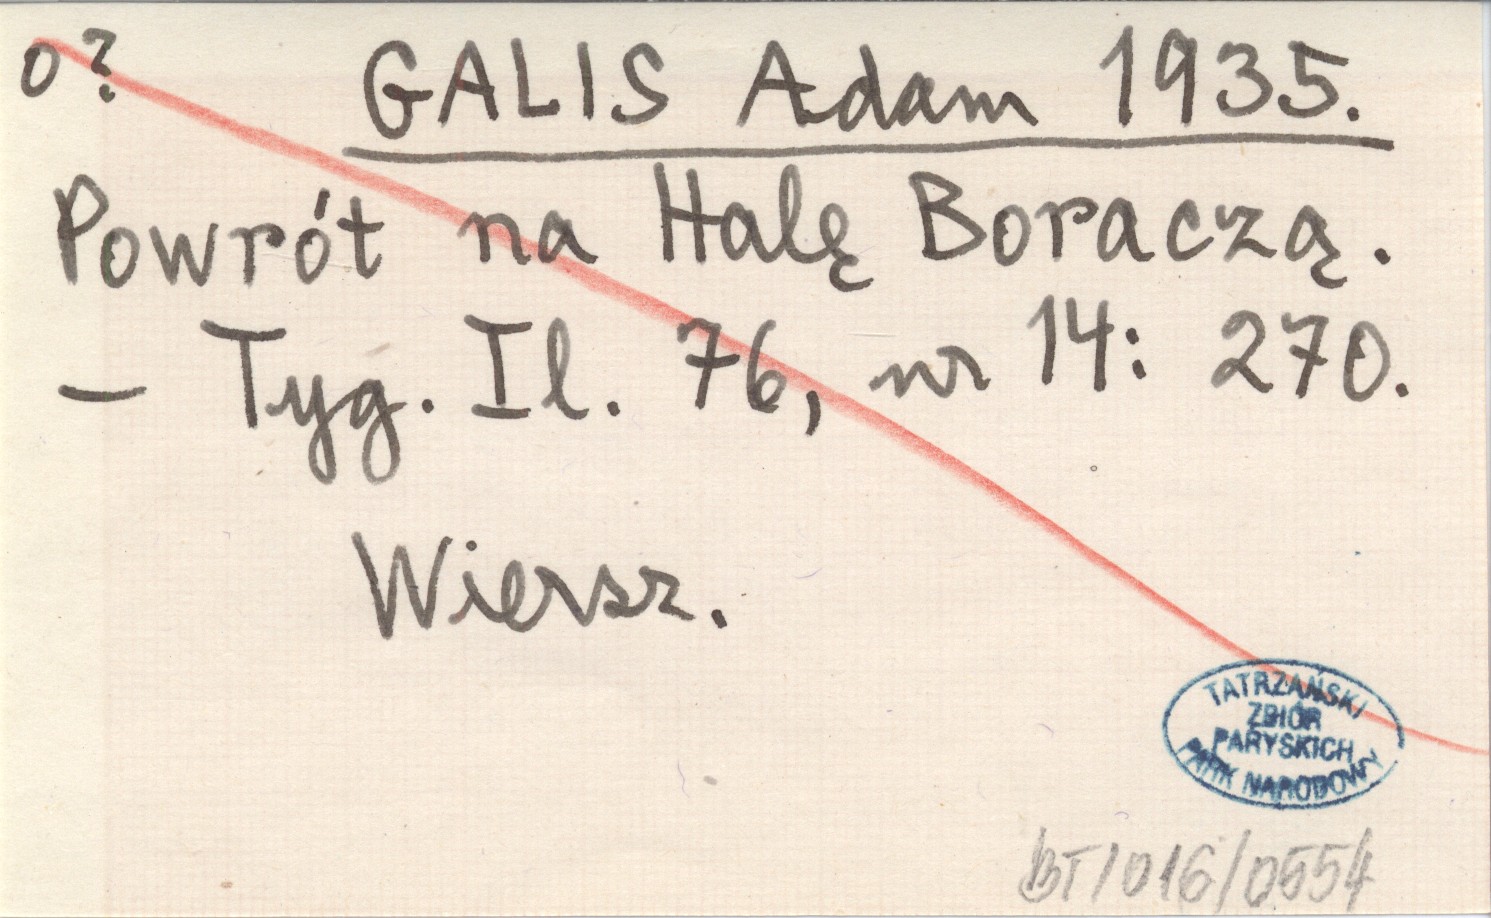 o?
GALIS Adam 1935.
Powrót na Halę Boraczą.
– Tyg. Il. 76, nr 14: 270.
Wiersz.
TATRZAŃSKI
ZBIÓR
PARYSKICH
PARK NARODOWY
BT/016/0554